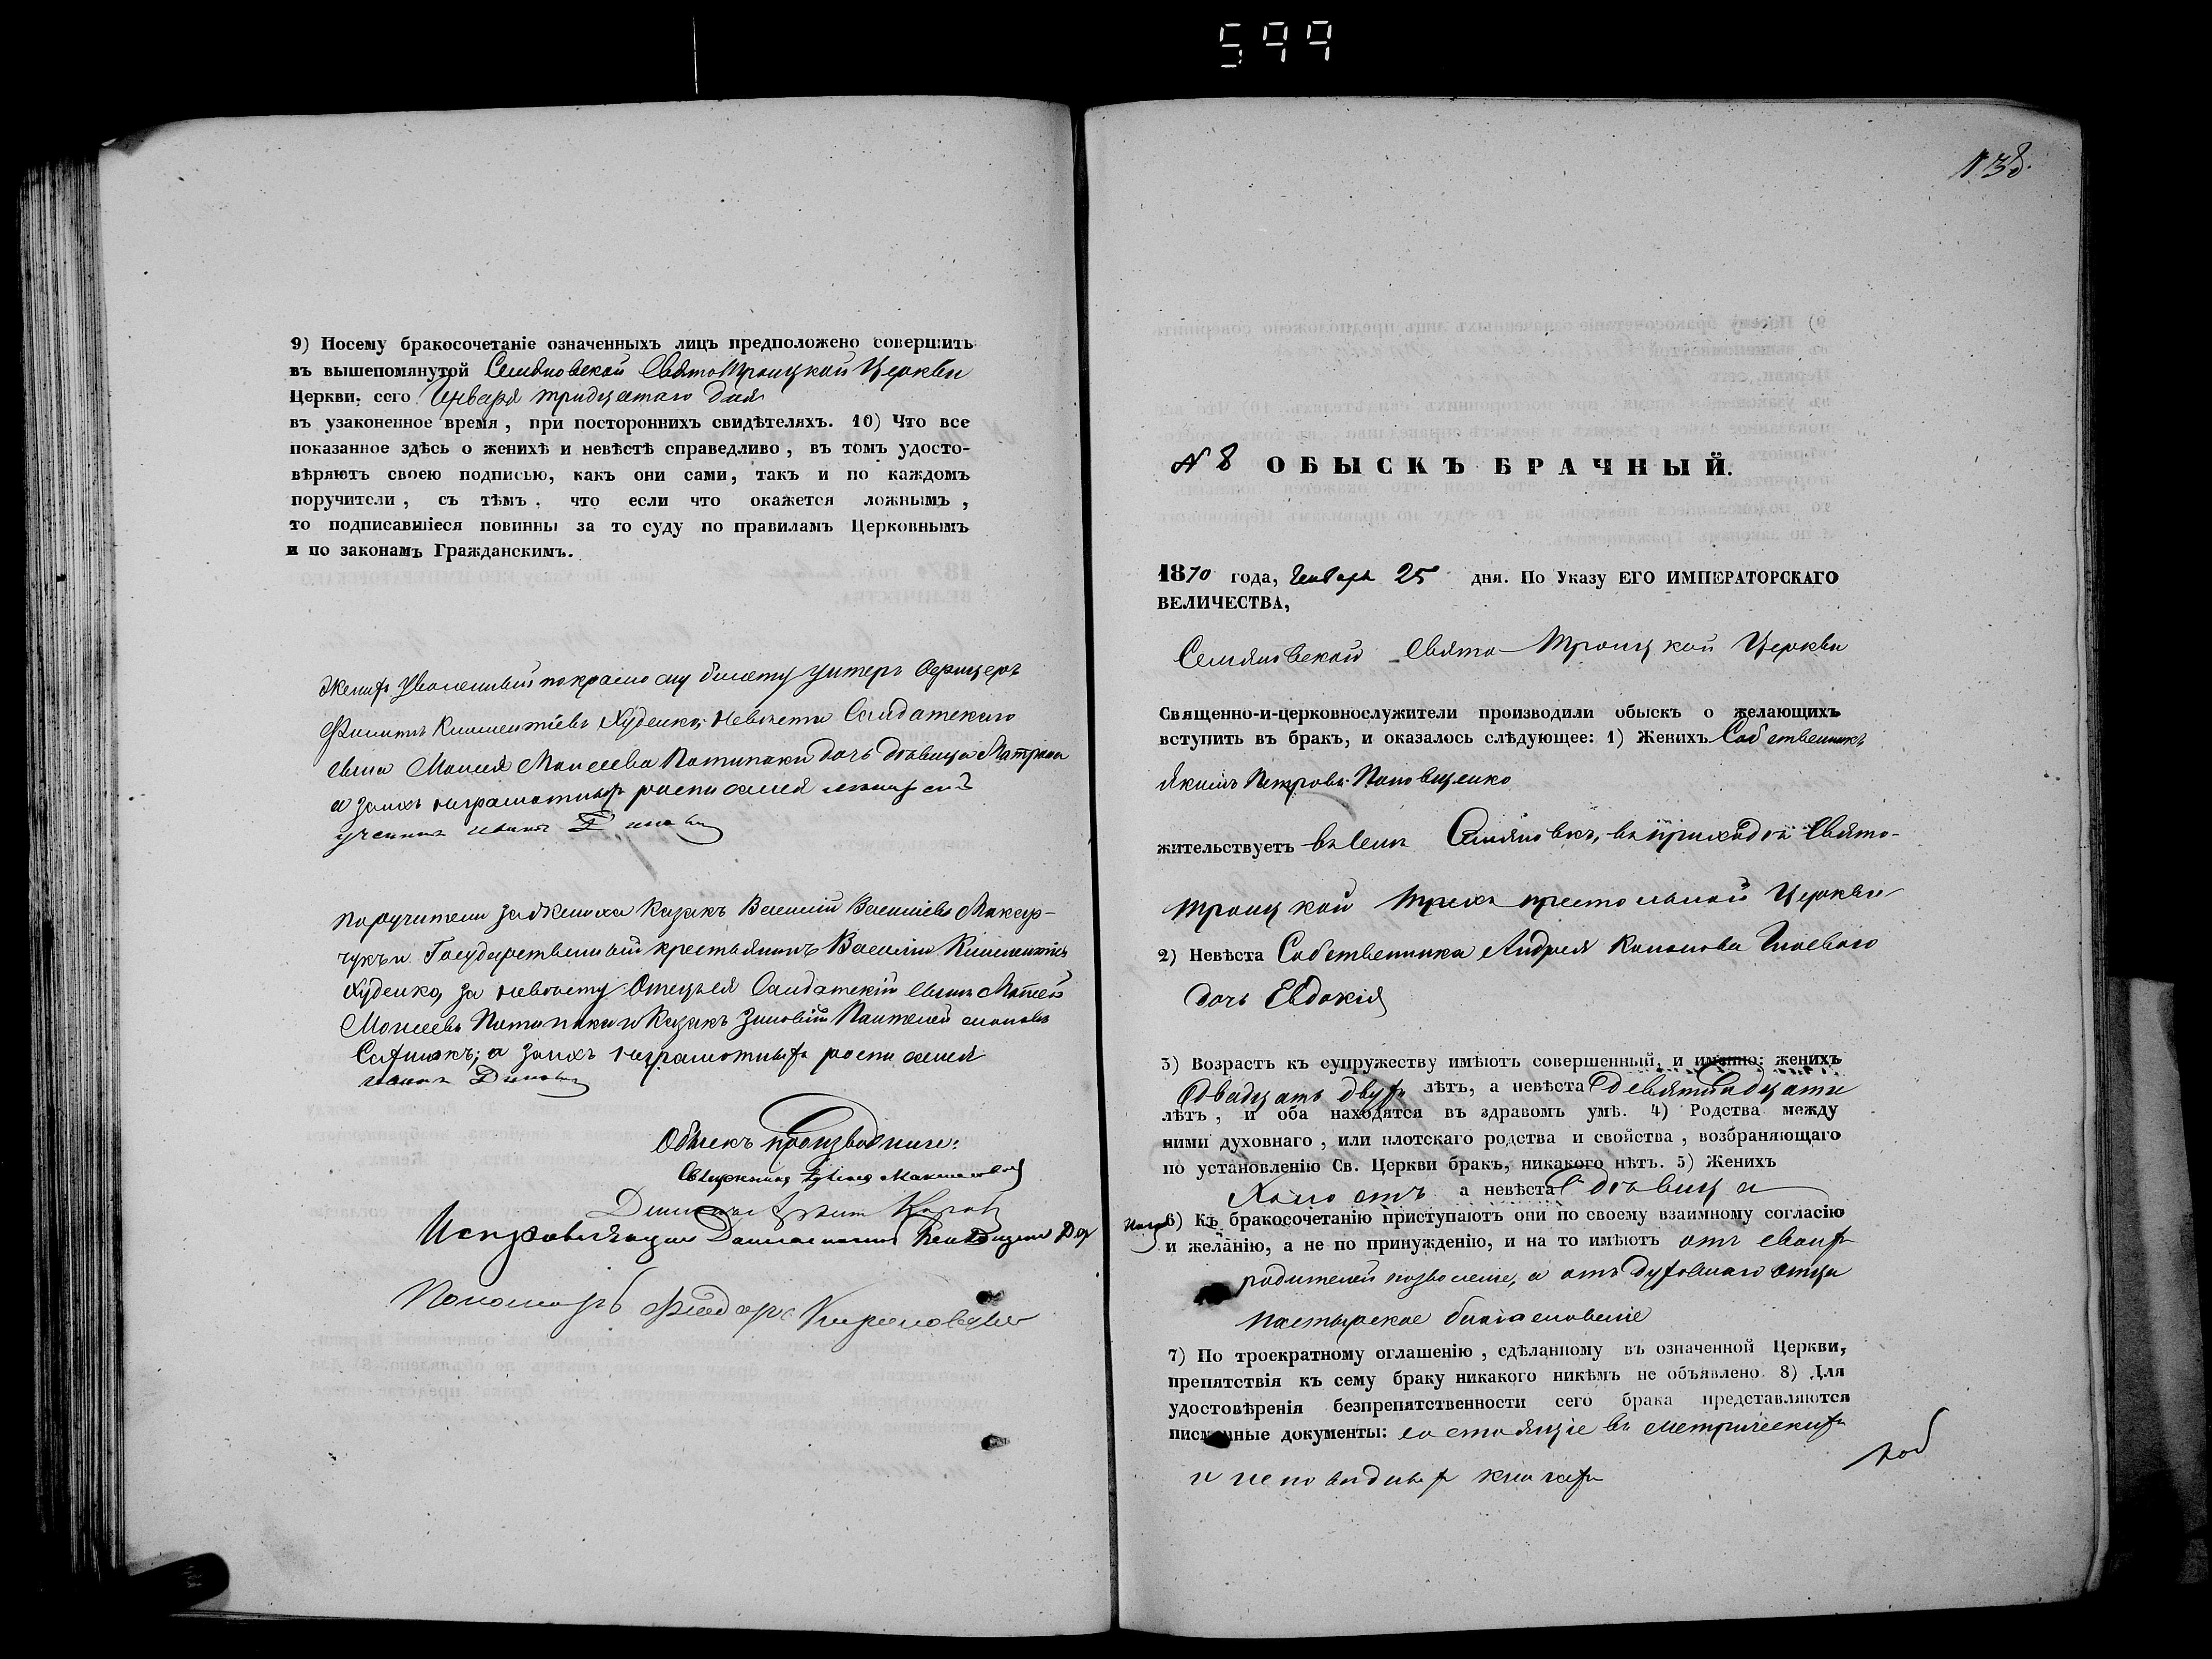 599
9) Посему бракосочетаніе означенныхъ лицъ предположено совершить
въ вышепомянутой Семяновской Свято Троицкой Церкви
Церкви, сего Января тридцатаго дня
въ узаконенное время, при постороннихъ свидѣтеляхъ. 10) Что все
показанное здѣсь о женихѣ и невѣстѣ справедливо, въ томъ удосто-
вѣряютъ своею подписью, какъ они сами, такъ и по каждомъ
поручители, съ тѣмъ, что если что окажется ложнымъ,
то подписавшіеся повинны за то суду по правиламъ Церковнымъ
и по законамъ Гражданскимъ.
Женихъ Уволенный по красному билету унтеръ Офицеръ
Климентіевъ Худенко; невѣста Салдатскаго
сына Моисея Моисеева дочь дѣвица Матрона
а за ихъ неграмотныхъ росписался
поручители За Жениха Казакъ Василій Васильевъ Макар-
чукъ и Государственный крестьянинъ Василій Климентіевъ
Худенко, за невѣсту Отецъ ея Салдатскій сынъ Моисей
Моисеевъ и Казакъ Зиновій
а за ихъ неграмотныхъ росписался
Обыскъ производили:
Священникъ
Исправляющій
Пономарь Феодоръ
№ 8 ОБЫСКЪ БРАЧНЫЙ.
1870 года, Января 25 дня. По Указу ЕГО ИМПЕРАТОРСКАГО
ВЕЛИЧЕСТВА,
Семяновской Свято-Троицкой Церкви
Священно-и-церковнослужители производили обыскъ о желающихъ
вступить въ бракъ, и оказалось слѣдующее: 1) Женихъ Собственникъ
Якимъ Петровъ Поповиченко
жительствуетъ въ селѣ Семяновкѣ, въ приходѣ Свято-
Троицкой Трехъ престольной Церкви
2) Невѣста Собственника Андрея Кононова Гноеваго
дочь Евдокія
3) Возрастъ къ супружеству имѣютъ совершенный, и именно: женихъ
двадцать двухъ лѣтъ, а невѣста девятнадцати
лѣтъ, и оба находятся въ здравомъ умѣ. 4) Родства между
ними духовнаго, или плотскаго родства и свойства, возбраняющаго
по установленію Св. Церкви бракъ, никакого нѣтъ. 5) Женихъ
Холостъ а невѣста дѣвица
6) Къ бракосочетанію приступаютъ они по своему взаимному согласію
и желанію, а не по принужденію, и на то имѣютъ отъ своихъ
родителей позволеніе, а отъ духовнаго отца
пастырское благословеніе
7) По троекратному оглашенію, сдѣланному въ означенной Церкви,
препятствія къ сему браку никакого никѣмъ не объявлено. 8) Для
удостовѣренія безпрепятственности сего брака представляются
письменные документы: состоящіе въ метрическихъ
и исповѣдныхъ книгахъ